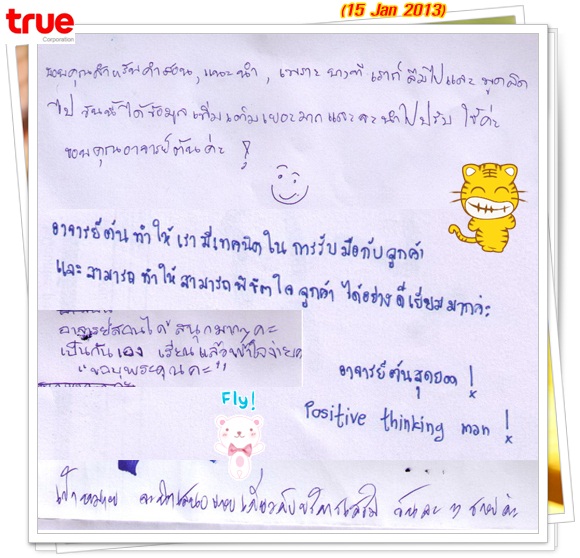 true
Corporation
(15 Jan 2013)
ขอบคุณสำหรับคำสอน, แนะนำ, เพราะบางทีเราก็ลืมไปและพูดผิด
ไป วันนี้ได้ข้อมูลเพิ่มเติมเยอะมากและจะนำไปปรับใช้ค่ะ
ขอบคุณอาจารย์ต้นค่ะ !
อาจารย์ต้นทำให้เรามีเทคนิคในการรับมือกับลูกค้า
และสามารถทำให้สามารถพิชิตใจลูกค้าได้อย่างดีเยี่ยมมากค่ะ
อาจารย์สอนได้ สนุกมากๆ คะ
เป็นกันเอง เรียนแล้วเข้าใจง่ายค
"ขอบพระคุณคะ"
อาจารย์ต้นสุดยอด !
Positive thinking man !
Fly!
เป้าหมาย